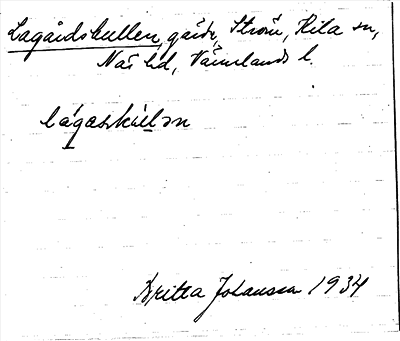 Lagårdskullen, gård, Strom, Kila sn,
Näs hd, Värmlands l.
lágaskúlən
Britta Johansson 1934